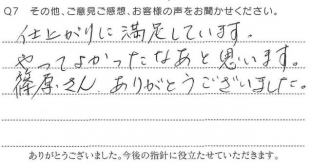 Q7 その他、ご意見ご感想、お客様の声をお聞かせください。
仕上がりに満足しています。
やってよかったなあと思います。
篠原さん ありがとうございました。
ありがとうございました。今後の指針に役立たせていただきます。